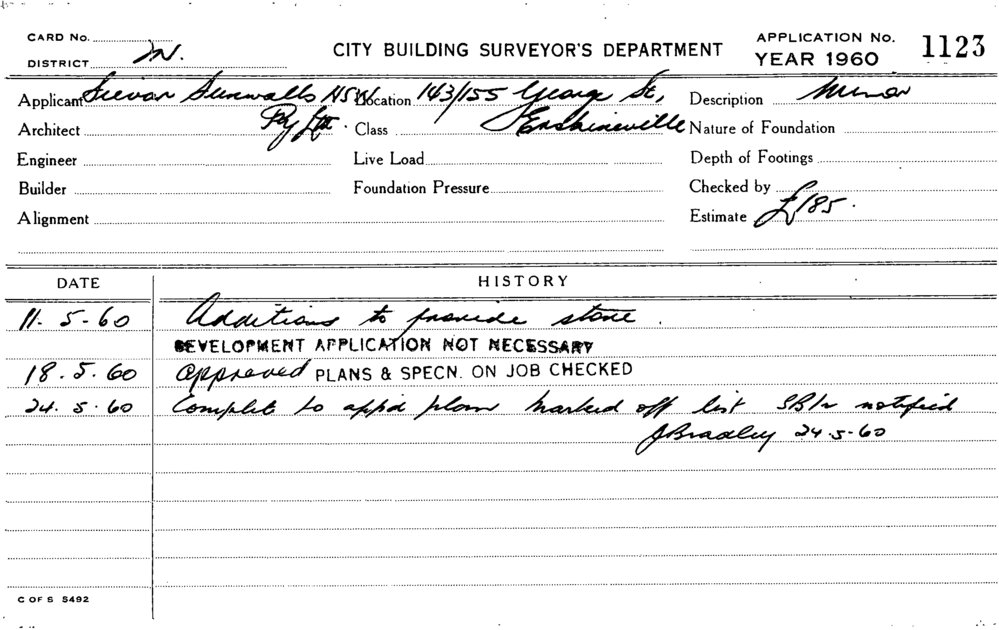 CARD No.
DISTRICT N.
CITY BUILDING SURVEYOR'S DEPARTMENT
APPLICATION No.
YEAR 1960
1123
Applicant Trevor Sunwalls NSW
Pty Ltd.
Location 143/155 George St,
Erskineville
Description Minor
Architect
Class
Nature of Foundation
Engineer
Live Load
Depth of Footings
Builder
Foundation Pressure
Checked by
Alignment
Estimate £185.
DATE HISTORY
11.5-60 Additions to provide store.
DEVELOPMENT APPLICATION NOT NECESSARY
18.5.60 Approved PLANS & SPECN. ON JOB CHECKED
24.5.60 Complete to appd plan marked off list notified
JBradley 24-5-60
C OF S 5492